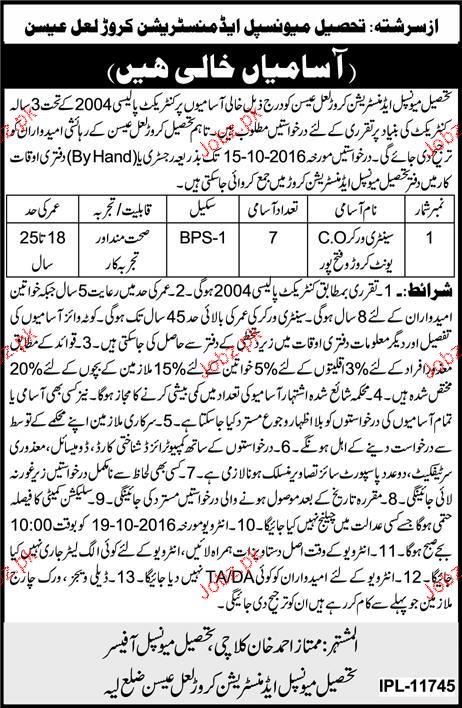 ازسرشتہ: تحصیل میونسپل ایڈمنسٹریشن کروڑ لعل عیسن
(آسامیاں خالی ھیں)
تحصیل میونسپل ایڈمنسٹریشن کروڑ لعل عیسن کو درج ذیل خالی آسامیوں پر کنٹریکٹ پالیسی 2004 کے تحت 3 سالہ
کنٹریکٹ کی بنیاد پر تقرری کے لئے درخواستیں مطلوب ہیں۔ تاہم تحصیل کروڑ لعل عیسن کے رہائشی امیدواران کو
ترجیح دی جائے گی۔ درخواستیں مورخہ 15-10-2016 تک بذریعہ رجسٹری یا (By Hand) دفتری اوقات
کار میں دفتر تحصیل میونسپل ایڈمنسٹریشن کروڑ میں جمع کروائی جاسکتی ہیں۔
نمبر شمار نام آسامی تعداد آسامی سکیل قابلیت/ تجربہ عمر کی حد
1 سینٹری ورکر C.O یونٹ کروڑ و فتح پور 7 BPS-1 صحت مند اور تجربہ کار 18 تا 25 سال
شرائط:۔ 1- تقرری بمطابق کنٹریکٹ پالیسی 2004 ہوگی۔ 2- عمر کی حد میں رعایت 5 سال جبکہ خواتین
امیدواران کے لئے 8 سال ہوگی۔ سینٹری ورکر کی عمر کی بالائی حد 45 سال تک ہوگی۔ کوٹہ وائز آسامیوں کی
تفصیل اور دیگر معلومات دفتری اوقات میں زیر دستخطی کے دفتر سے حاصل کی جاسکتی ہیں۔ 3- قوائد کے مطابق
معذور افراد کے لئے 3% اقلیتوں کے لئے 5% خواتین کے لئے 15% ملازمین کے بچوں کے لئے 20%
مختص شدہ ہیں۔ 4- محکمہ شائع شدہ اشتہار آسامیوں کی تعداد میں کمی بیشی کرنے کا مجاز ہوگا۔ نیز کسی بھی آسامی یا
تمام آسامیوں کی درخواستوں کو بلا اظہار وجوع مسترد کیا جاسکتا ہے۔ 5- سرکاری ملازمین اپنے محکمے کے توسط
سے درخواست دینے کے اہل ہونگے۔ 6- درخواستوں کے ساتھ کمپیوٹرائزڈ شناختی کارڈ، ڈومیسائل، معذوری
سرٹیفکیٹ، دو عدد پاسپورٹ سائز تصاویر منسلک ہونا لازمی ہے۔ 7- کسی بھی لحاظ سے نامکمل درخواستیں زیر غور نہ
لائی جائینگی۔ 8- مقررہ تاریخ کے بعد موصول ہونے والی درخواستیں مسترد کی جائینگی۔ 9- سلیکشن کمیٹی کا فیصلہ
حتمی ہوگا جسے کسی عدالت میں چیلنج نہیں کیا جائیگا۔ 10- انٹرویو مورخہ 19-10-2016 کو بوقت 10:00
بجے صبح ہوگا۔ 11- انٹرویو کے وقت اصل دستاویزات ہمراہ لائیں، انٹرویو کے لئے کوئی الگ لیٹر جاری نہیں کیا
جائیگا۔ 12- انٹرویو کے لئے امیدواران کو کوئی TA/DA نہیں دیا جائیگا۔ 13- ڈیلی ویجز، ورک چارج
ملازمین جو پہلے سے کام کر رہے ہیں ان کو ترجیح دی جائیگی۔
المشتہر: ممتاز احمد خان کلاچی، تحصیل میونسپل آفیسر
تحصیل میونسپل ایڈمنسٹریشن کروڑ لعل عیسن ضلع لیہ
IPL-11745
Jobz.pk